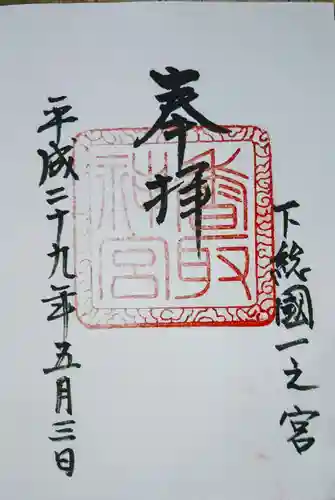 下総國一之宮
奉拝
香取
神宮
平成二十九年五月三日